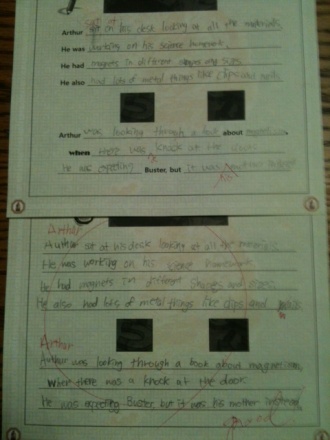 Arthur sat on his desk looking at all the materials.
He was working on his science homework.
He had magnets in different shapes and sizes.
He also had lots of metal things like clips and nails.
Arthur was looking through a book about
when there was knock at the door.
He was expecting Buster, but it was
Arthur
Arthur sat at his desk looking at all the
He was working on his homework.
He had magnets in different shapes and sizes.
He also had lots of metal things like clips and
Arthur
Arthur was looking through a book about magnetism
when there was a knock at the door.
He was expecting Buster, but it was his mother instead.